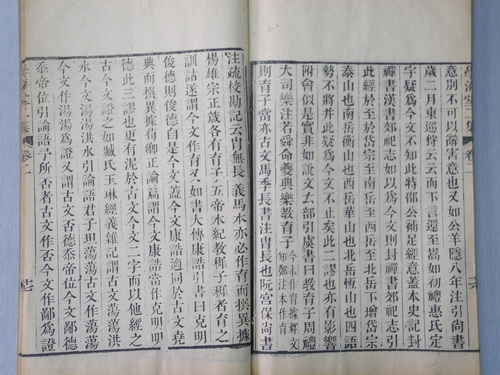 意別不可以辭害意也又如公羊隱八年注引尚書
歲二月東巡狩云云而下言還至嵩如初禮惠氏定
宇疑爲今文不知此特邵公補足經意蓋本史記封
禪書漢書郊祀志如以爲今文則封禪書郊祀志引
此經於至於岱宗至南岳至西岳至北岳下增岱宗
泰山也南岳衡山也西岳華山也北岳恆山也四語
勢不將并此疑爲今文不止矣此二謬也亦有影響
附會似是實非如說文𠫓部引虞書曰教育子周禮
大司樂注若舜命夔典樂教育子今本作冑據釋文知鄭注本作育
則育子當亦古文馬季長書注冑長也阮宮保尚書
注疏校勘記云冑無長義馬本亦必作育而撰異據
楊雄宗正箴各有育子五帝本紀教稺子稺者育之
訓詁遂謂今文作育又如書大傳康誥引書曰克明
俊德則俊自是今文蓋今文康誥適同於古文堯
典而撰異據荀卿正論篇謂今文康誥當作克明明
德此三謬也更有泥於古文今文二字而以他經之
古今文證之如臧氏玉琳經義雜記謂古文蕩蕩洪
水今文湯湯洪水引論語君子坦蕩蕩古文作蕩蕩
今文作湯湯爲證又謂古文否德忝帝位今文鄙德
忝帝位引論語予所否者古文作否今文作鄙爲證